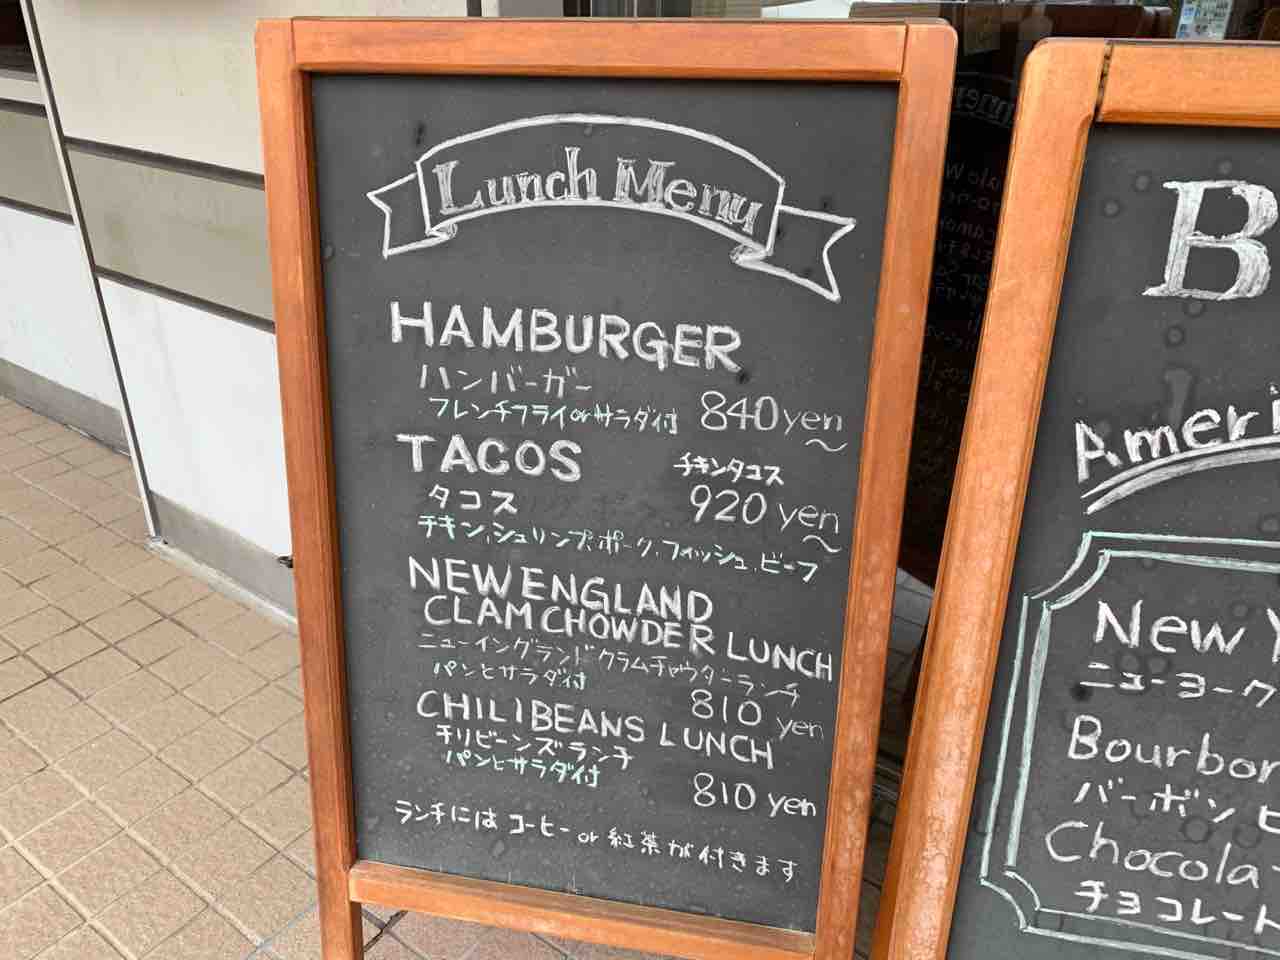 Lunch Menu
HAMBURGER
ハンバーガー
フレンチフライorサラダ付 840yen〜
TACOS
チキンタコス
タコス 920 yen〜
チキン、シュリンプ、ポーク、フィッシュ、ビーフ
NEW ENGLAND
CLAM CHOWDER LUNCH
ニューイングランドクラムチャウダーランチ
パンとサラダ付 810 yen
CHILI BEANS LUNCH
チリビーンズランチ
パンとサラダ付 810 yen
ランチにはコーヒーor紅茶が付きます
B
Ameri
New Y
ニューヨーク
Bourbon
バーボン
Chocola
チョコレート